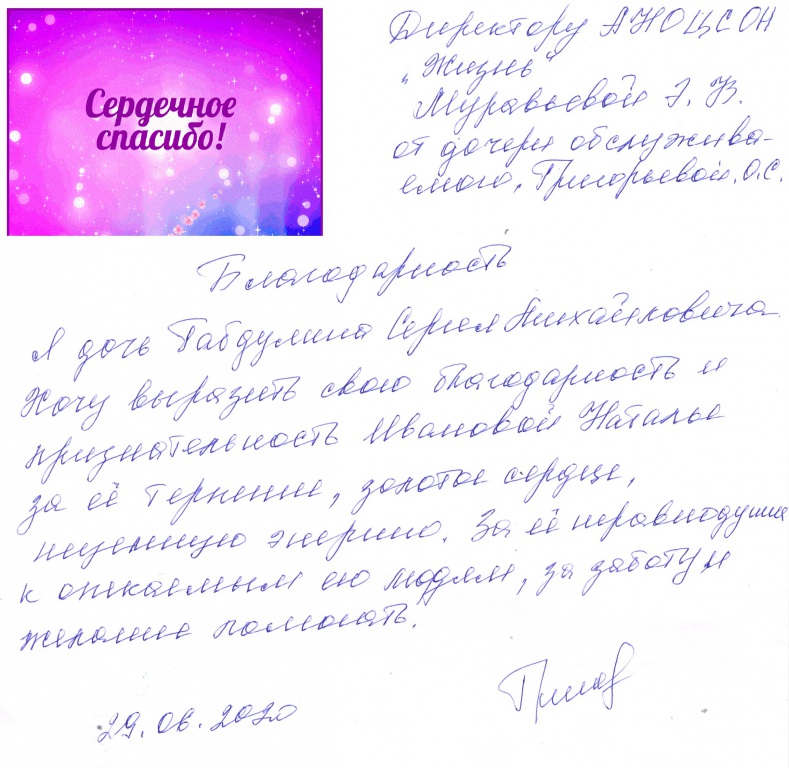 Сердечное
спасибо!
Директору АНОЦСОН
„Жизнь"
Муравьевой Э. В.
от дочери обслужива-
емого, Григорьевой. О.С.
Благодарность
Я дочь Габдулина Сергея Михайловича.
Хочу выразить свою благодарность и
признательность Ивановой Наталье
за её терпение, золотое сердце,
неуемную энергию. За её неравнодушие
к опекаемым ею людям, за заботу и
желание помогать.
29.06.2020